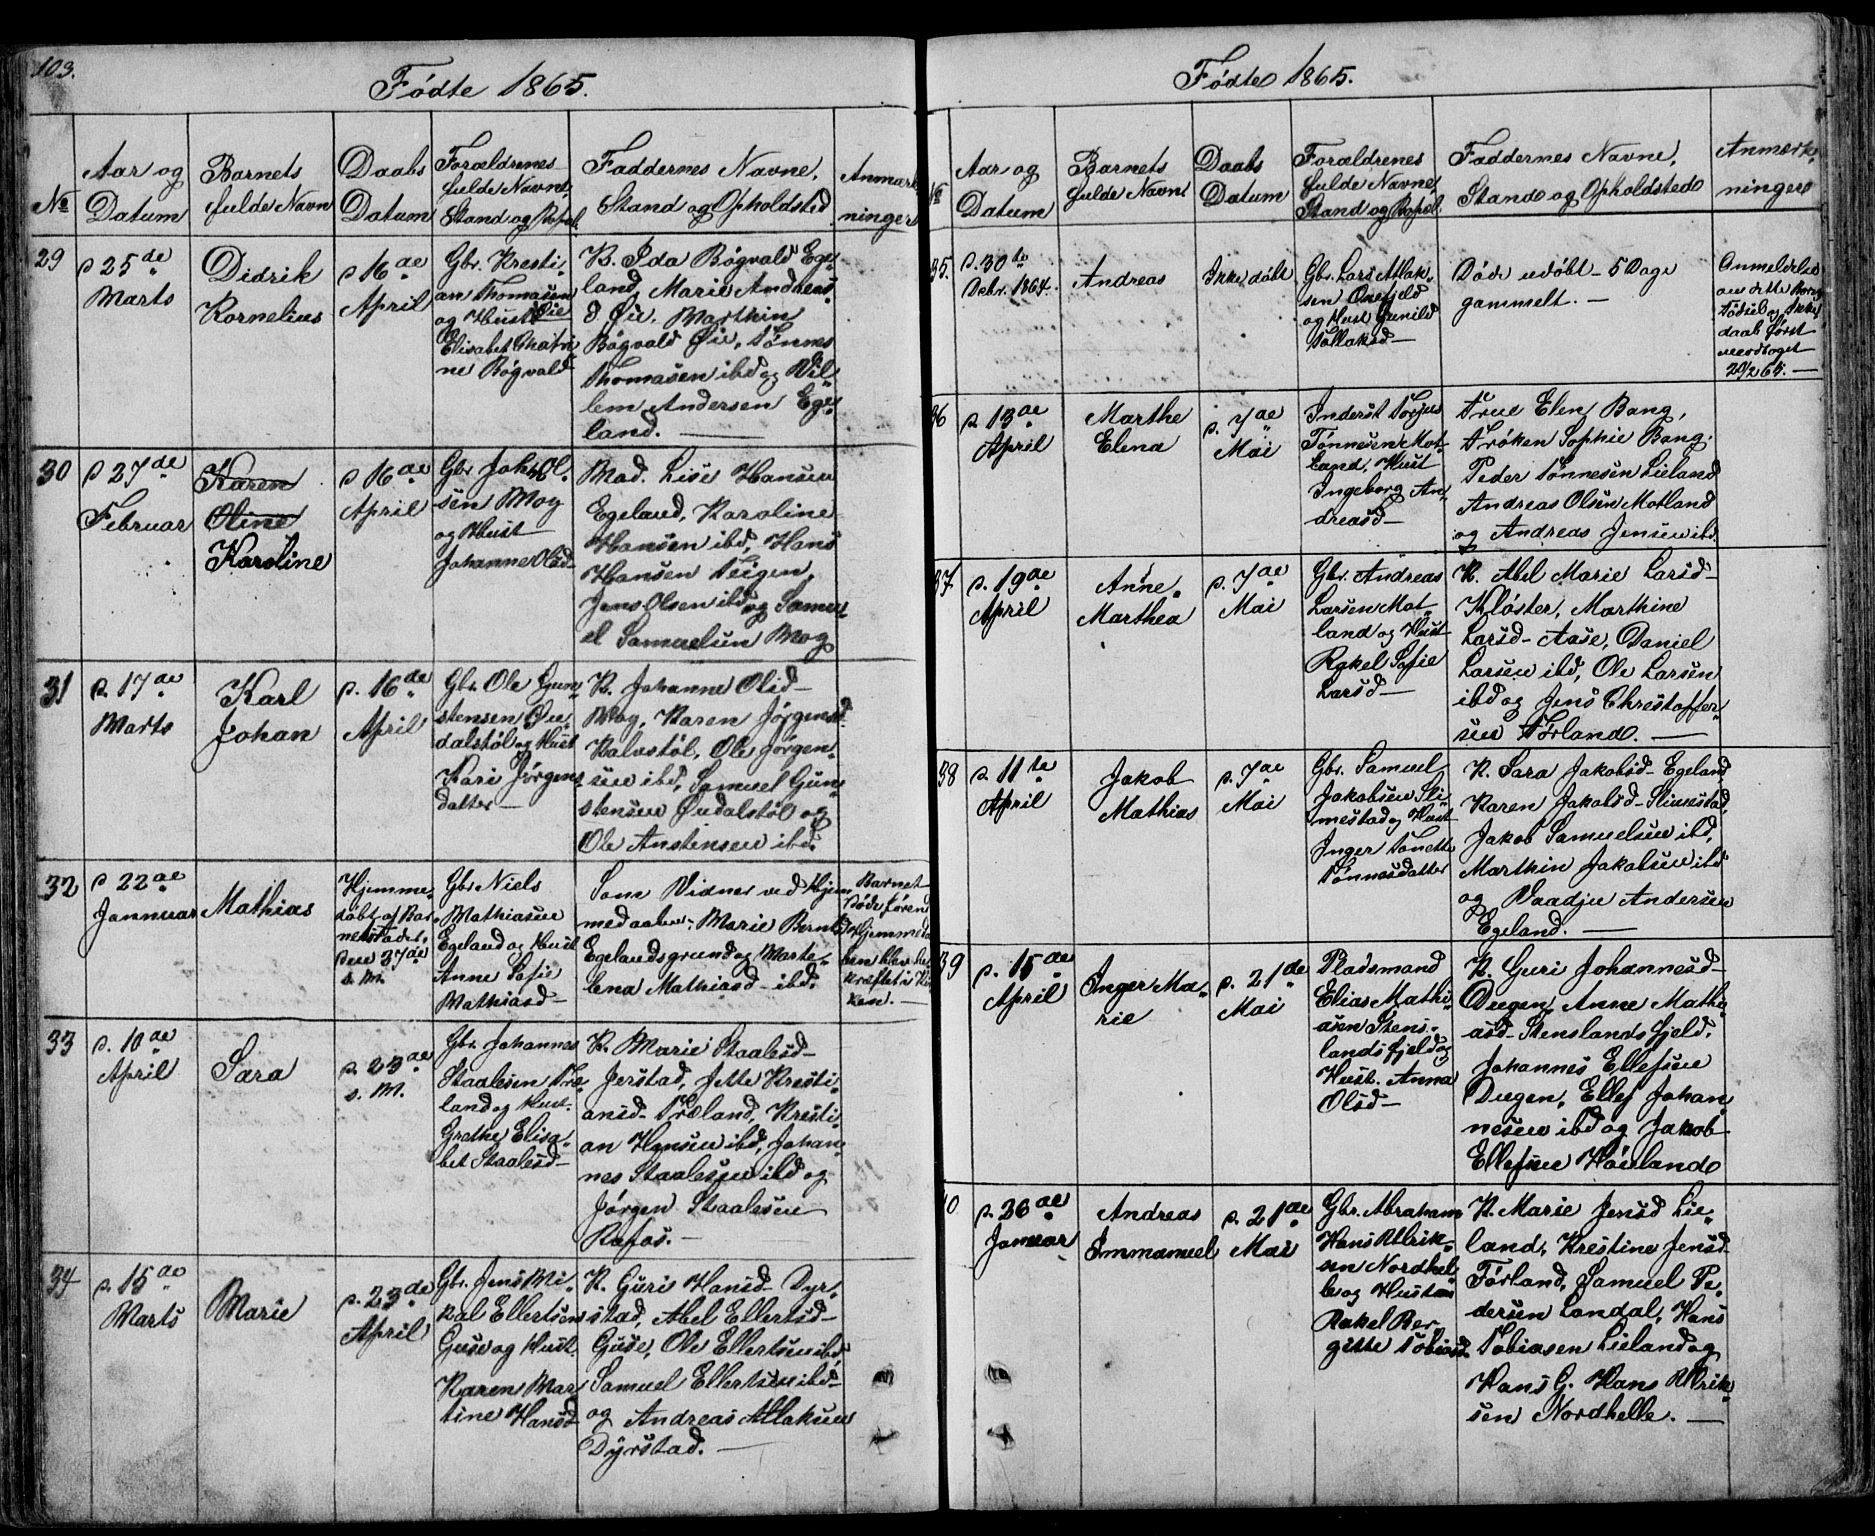 103.
Fødte 1865.
No
Aar og
Datum
Barnets
fulde Navn
Daabs
Datum
Forældrenes
fulde Navne,
Stand og Bopæl.
Faddernes Navne,
Stand og Opholdsted
Anmærk
ninger
29
d 25de
Marts
Didrik
Kornelius
d 16de
April
Gbr. Kresti-
an Thomasen
og Hust Øie
Elisabet Chatri
ne Bøgvald
K. Ida Bøgvald Ege-
land, Marie Andreas-
d Øie, Marthin
Bøgvald Øie, Tønnes
Thomasen ibd og Vil-
lem Andersen Ege-
land.
30
d 27de
Februar
Karen
Oline
Karoline
d 16de
April
Gbr Johs Ol-
sen Mog
og Hust
Johanne Olsd
Mad. Lise Hansen
Egeland, Karoline
Hansen ibd, Hans
Hansen Teigen,
Jens Olsen ibd og Samu-
el Samuelsen Mog
31
d. 17de
Marts
Karl
Johan
d. 16de
April
Gbr. Ole Gun-
stensen Øu-
dalstøl og Hust
Kari Jørgens
datter
K. Johanne Olsd-
Mog, Karen Jørgensd.
Kalvstøl, Ole Jørgen-
sen ibd, Samuel Gun-
stensen Øudalstøl og
Ole Anstensen ibd.
32
d 22de
Januuar
Mathias
Hjemme-
døbt af Bar-
nets Fader,
den 27de
s. M.
Gbr Niels
Mathiasen
Egeland og Hust
Anne Sofie
Mathiasd-
Som Vidner ved Hjem-
medaaben: Marie Bernts
Egelandsgrund og Marte-
lena Mathiasd- ibd.
Barnet
døde førend
Hjemmeda
ben blev be
kræftet i Kir
ken.
33
d. 10de
April
Sara
d. 23de
s. M.
Gbr. Johannes
Staalesen Træ-
land og Hust.
Grethe Elisa-
bet Staalesd-
K. Marie Staalesd-
Jerstad, Jette Kresti-
ansd- Træland, Kresti-
an Hansen ibd, Johan-
nes Staalesen ibd og
Jørgen Staalesen
Rafos.
34
d. 15de
Marts
Marie
d. 23de
April
Gbr. Jens Mi-
kal Ellertsen
Guse og Hust.
Karen Mar
tine Hansd
K. Guri Hansd Dyr-
stad, Abel Ellertsd-
Guse, Ole Ellertsen ibd,
Samuel Ellertsen ibd-
og Andreas Atlaksen
Dyrstad.
Fødte 1865.
No
Aar og
Datum
Barnets
fulde Navn
Daabs
Datum
Forældrenes
fulde Navne,
Stand og Bopæl.
Faddernes Navne,
Stand og Opholdsted
Anmærk
ninger
35.
d. 30te
Debr. 1864.
Andreas
Ikke døbt
Gbr. Lars Atlak-
sen Oxefjeld
og Hust Gunild
Tollaksd-
Døde udøbt- 5 Dage
gammelt.
Anmeldelse
om dette Barns
Fødsel og Ikke
daab først
modtaget
20/2 65.
36
d. 13de
April
Marthe
Elena
d. 7de
Mai
Inderst Torjus
Tønnesen Mot-
land, Hust
Ingeborg An-
dreasd-
Frue Elen Bang,
Frøken Sophie Bang,
Peder Tønnesen Lieland
Andreas Olsen Motland
og Andreas Jensen ibd.
37
d. 19de
April
Anne
Marthea
d. 7de
Mai
Gbr. Andreas
Larsen Mot-
land og Hust
Rakel Sofie
Larsd-
K. Abel Marie Larsd-
Kløster, Marthine
Larsd- Aase, Daniel
Larsen ibd, Ole Larsen
ibd og Jens Chrestoffer-
sen Førland.
38
d. 11te
April
Jakob
Mathias
d. 7de
Mai
Gbr. Samuel
Jakobsen Sli-
mestad og Hust
Inger Tonette
Tønnesdatter
K. Sara Jakobsd- Egeland
Karen Jakobsd- Slimestad,
Jakob Samuelsen ibd,
Marthin Jakobsen ibd
og Vaadju Andersen
Egeland.
39
d. 15de
April
Inger Ma-
rie
d. 21de
Mai
Pladsmand
Elias Mathi-
asen Stens-
landsfjeld og
Hust. Anna
Olsd-
K. Guri Johannesd-
Duegen, Anne Mathi-
asd- Stenslandsfjeld,
Johannes Ellefsen
Duegen, Ellef Johan-
nesen ibd og Jakob
Ellefsen Høiland
40
d. 26de
Januar
Andreas
Immanuel
d. 21de
Mai
Gbr. Abraham
Hans Ulrik-
sen Nordhel-
le og Hustru
Rakel Ber
gitte Tobiasd
K. Marie Jensd Lie-
land, Krestine Jensd-
Førland, Samuel Pe-
dersen Landal, Hans
Tobiasen Lieland og
Hans G. Hans Ulrik-
sen Nordhelle.